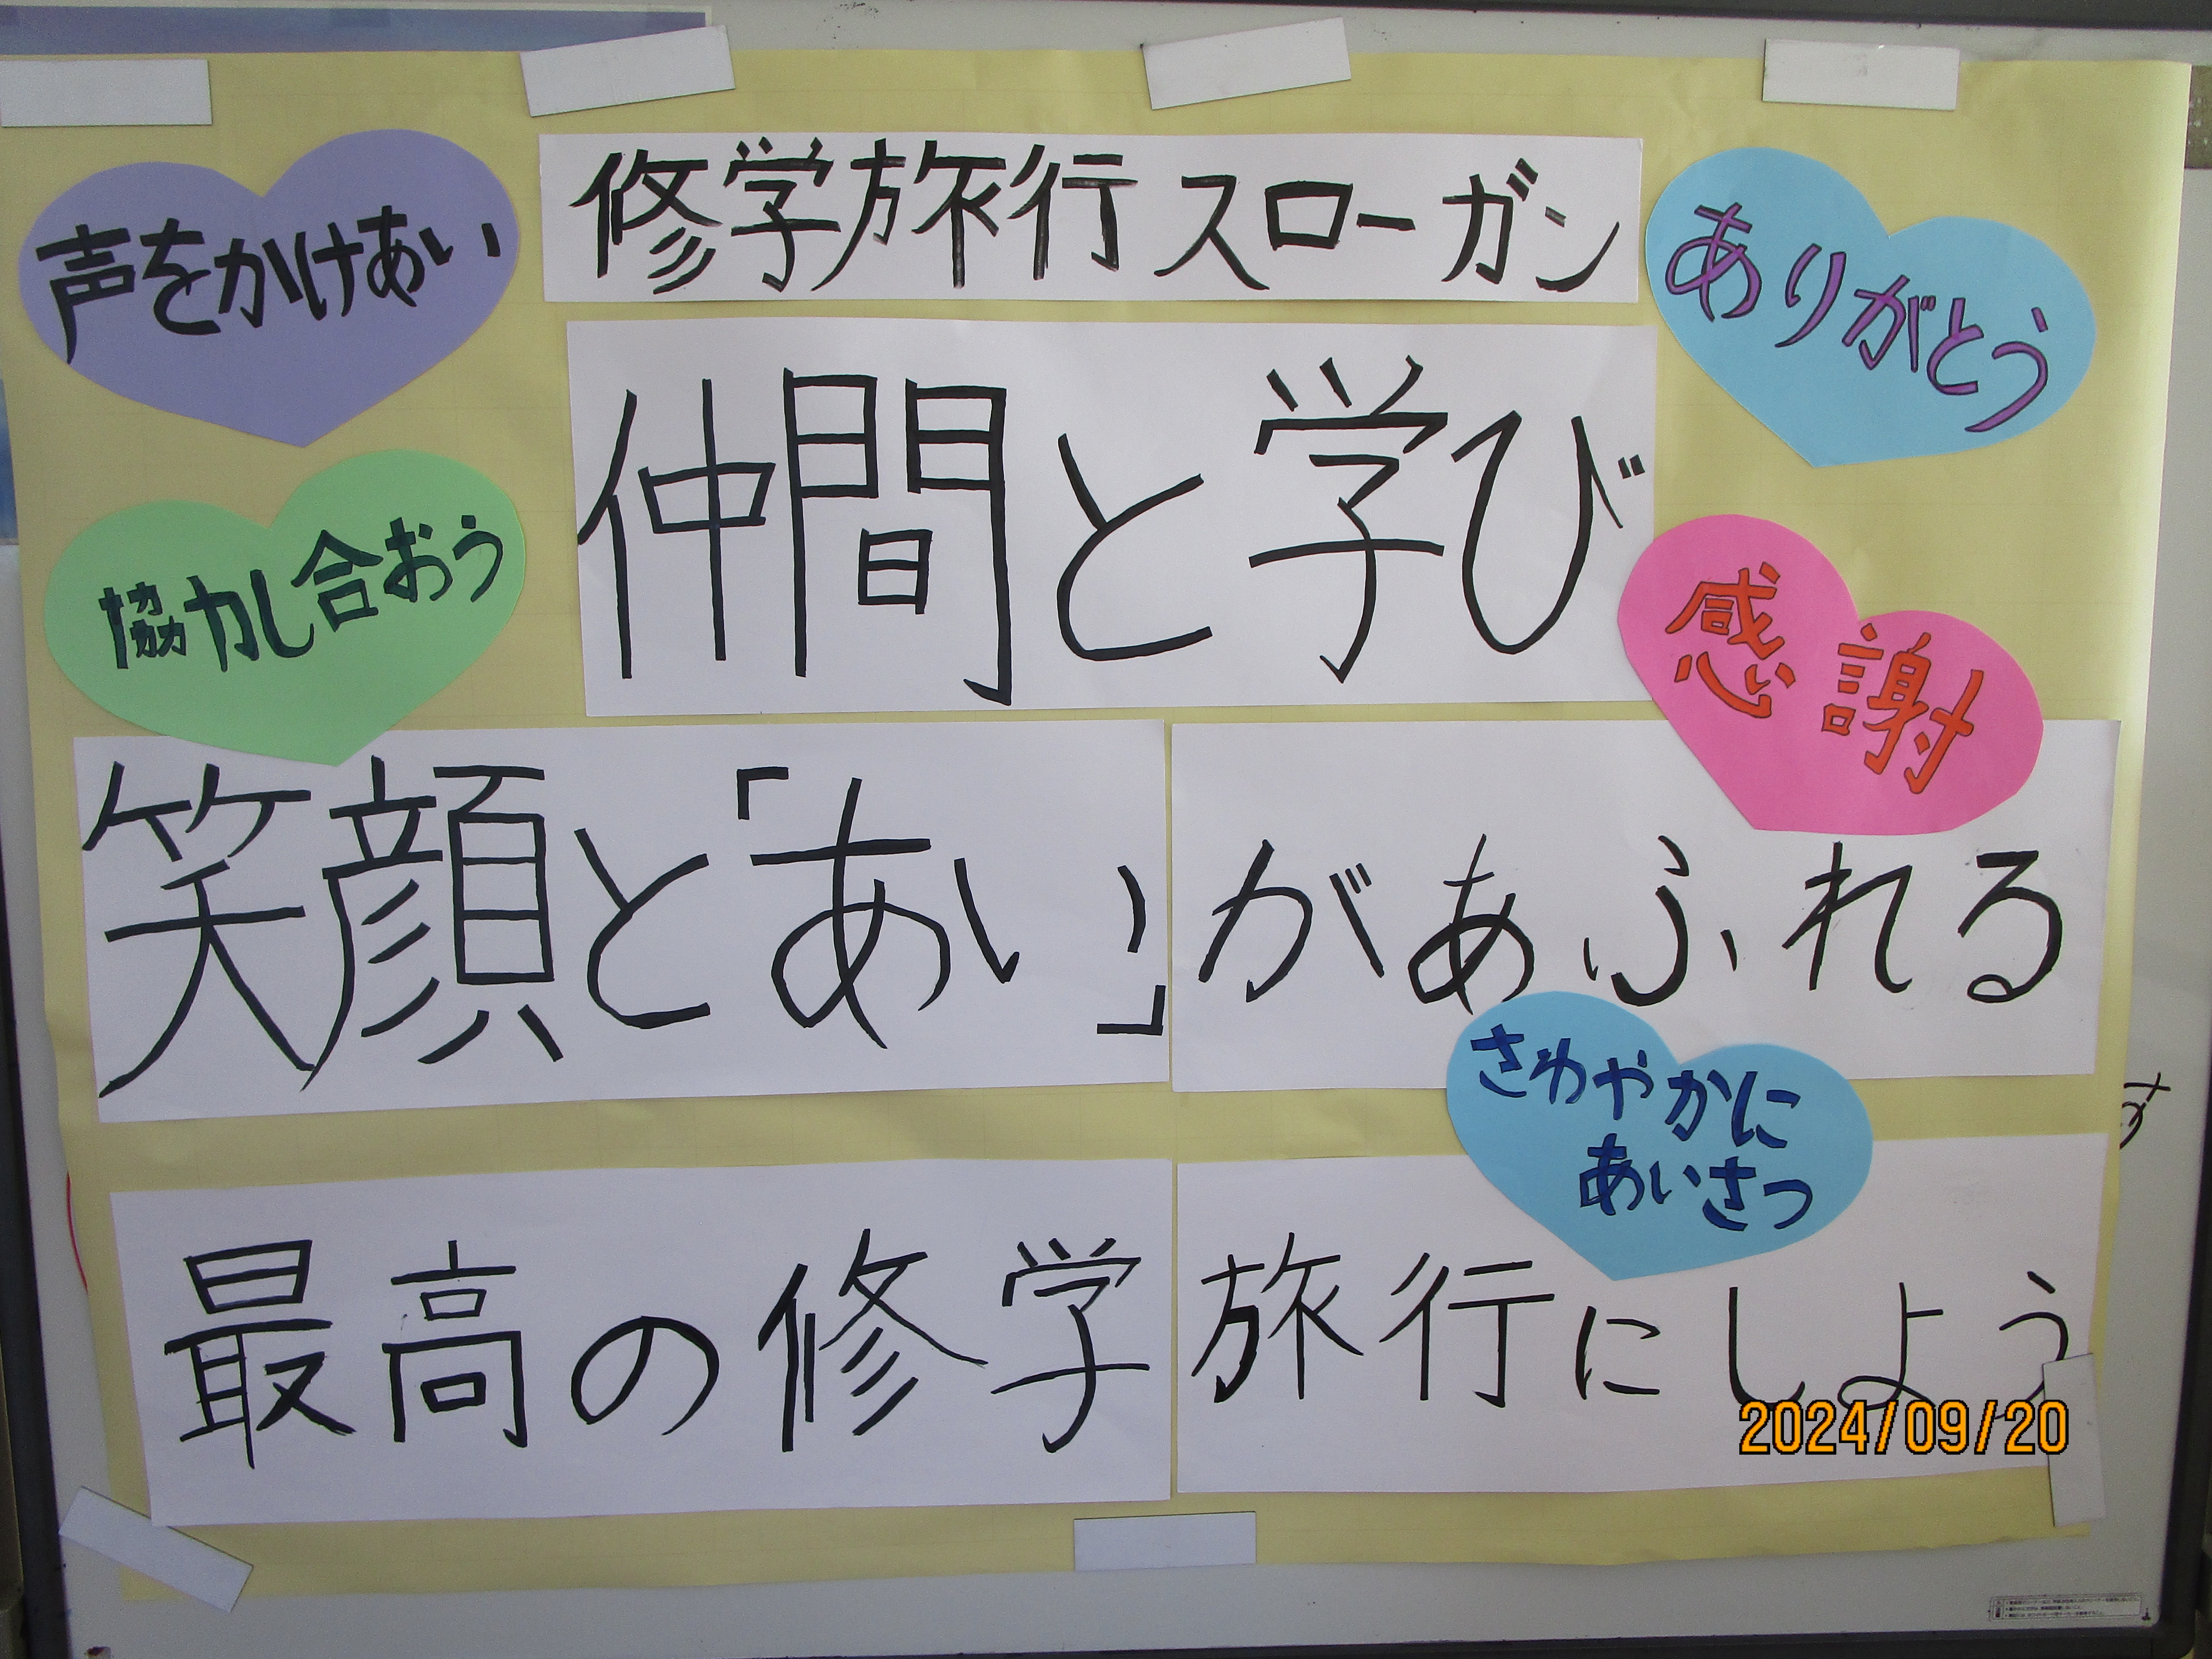 修学旅行スローガン
声をかけあい
ありがとう
仲間と学び
協力し合おう
感謝
笑顔と「あい」があふれる
さわやかに
あいさつ
最高の修学旅行にしよう
す
2024/09/20